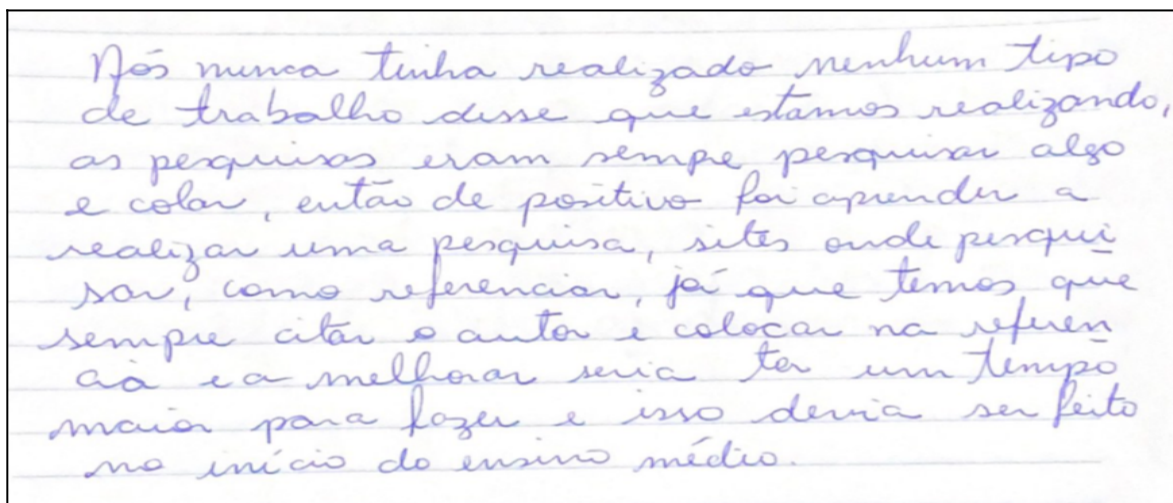 Nós nunca tinha realizado nenhum tipo
de trabalho desse que estamos realizando,
as pesquisas eram sempe pesquisar algo
e colar, então de positivo foi aprender a
realizar uma pesquisa, sites onde pesqui
sar, como referenciar, já que temos que
sempre citar o autor e colocar na referên
cia e a melhorar seria ter um tempo
maior para fazer e isso devia ser feito
no início do ensino médio.